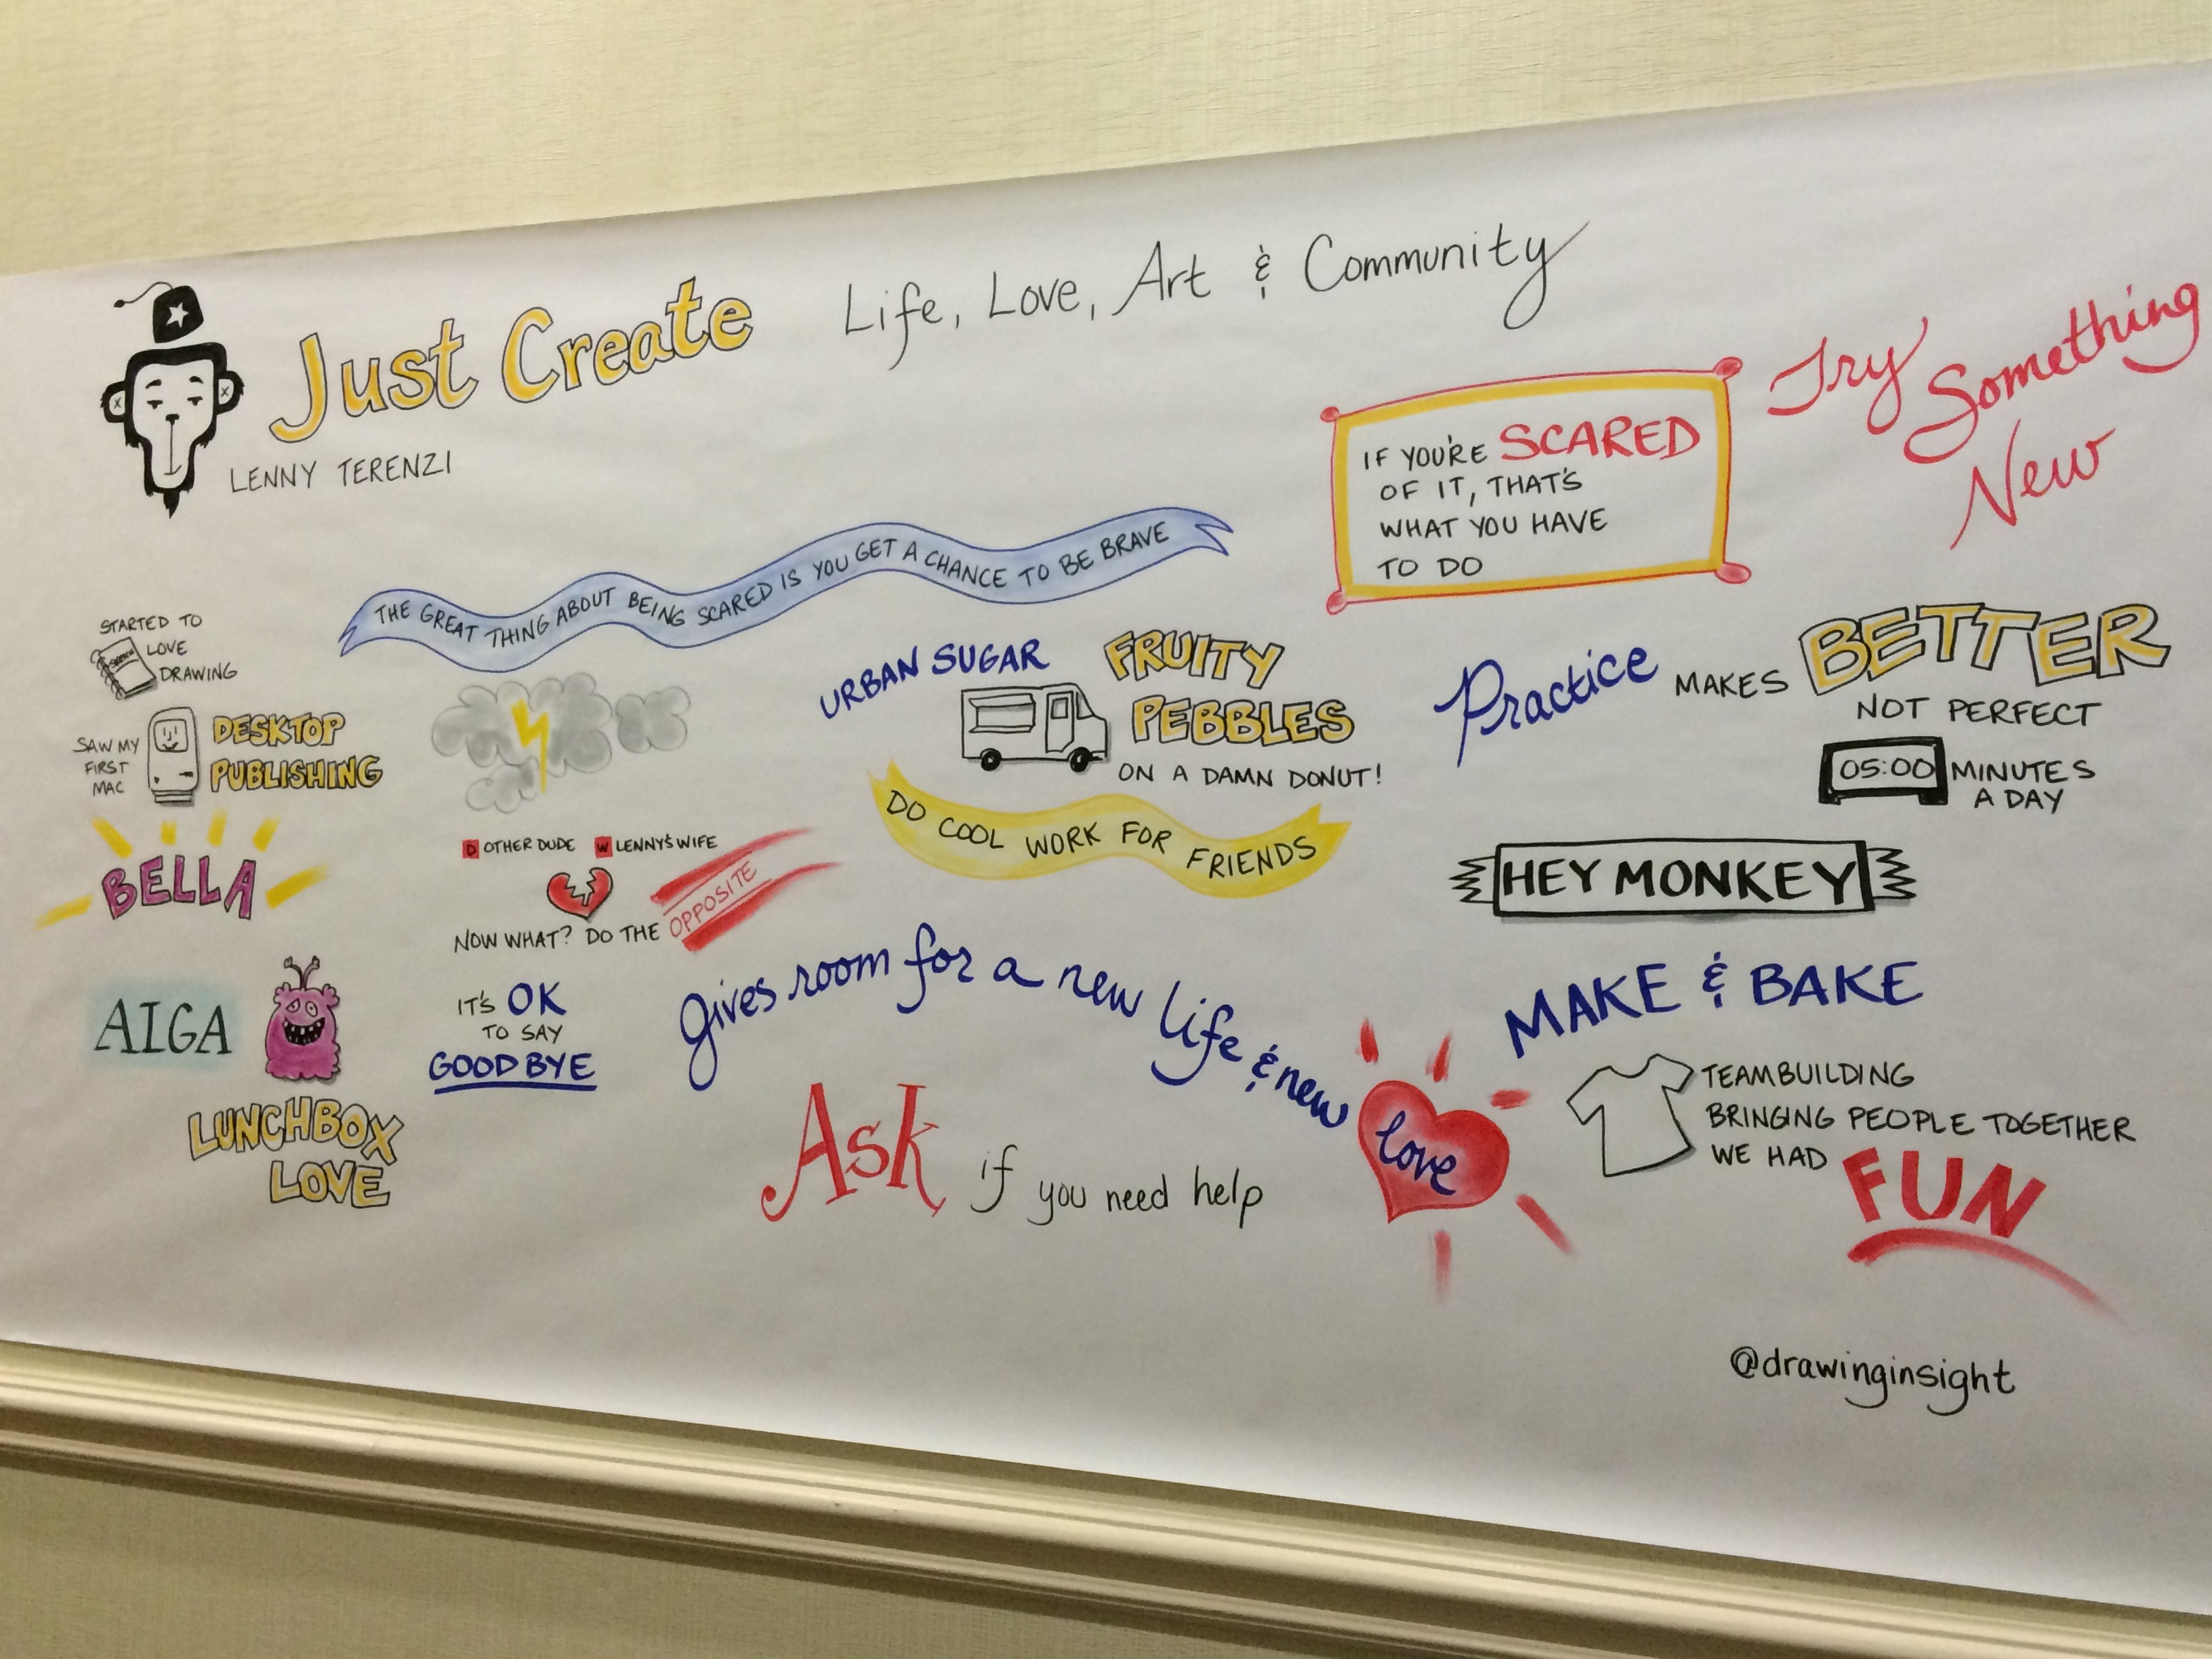 Just Create
LENNY TERENZI
Life, Love, Art & Community
Try
Something
New
IF YOU'RE SCARED
OF IT, THAT'S
WHAT YOU HAVE
TO DO
THE GREAT THING ABOUT BEING SCARED IS YOU GET A CHANCE TO BE BRAVE
STARTED TO
LOVE
DRAWING
SAW MY
FIRST
MAC
DESKTOP
PUBLISHING
BELLA
AIGA
LUNCHBOX
LOVE
D OTHER DUDE W LENNY'S WIFE
NOW WHAT? DO THE OPPOSITE
IT'S OK
TO SAY
GOODBYE
gives room for a new life & new love
URBAN SUGAR
FRUITY
PEBBLES
ON A DAMN DONUT!
DO COOL WORK FOR FRIENDS
Ask if you need help
Practice MAKES BETTER
NOT PERFECT
05:00 MINUTES
A DAY
HEY MONKEY
MAKE & BAKE
TEAMBUILDING
BRINGING PEOPLE TOGETHER
WE HAD FUN
@drawinginsight